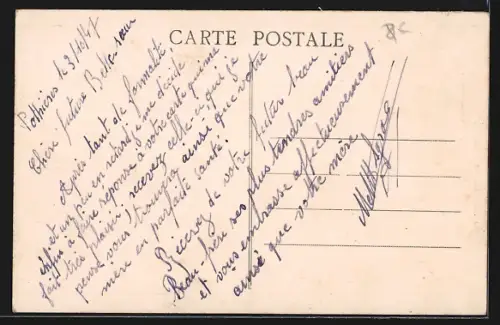 CARTE POSTALE
Pothières le 3/10/47
Chère future Belle-sœur
Après tant de formalité,
et un peu en retard je me décide
enfin à faire réponse à votre carte qui me
fait très plaisir, recevez celle-ci que je
pense vous trouvera ainsi que votre
mère en parfaite santé.
Recevez de votre futur beau
Beau-frère ses plus tendres amitiés
et vous embrasse affectueusement
ainsi que votre mère